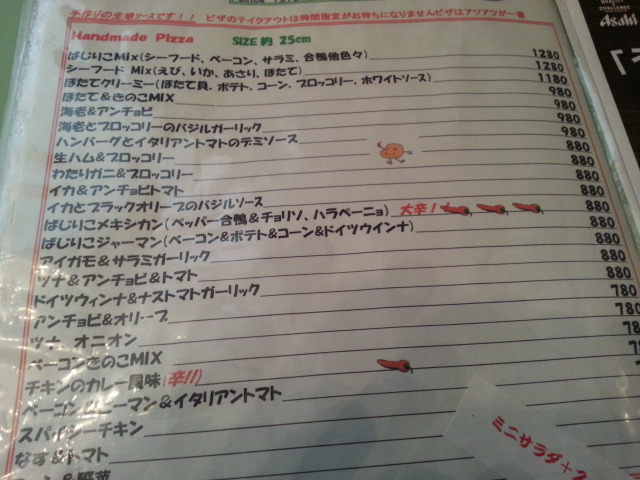 手作りの生地ソースです！！ ピザのテイクアウトは時間指定がお待ちになりませんピザはアツアツが一番
Handmade Pizza SIZE 約 25cm
ばじりこMix(シーフード、ベーコン、サラミ、合鴨他色々) 1280
シーフード Mix(えび、いか、あさり、ほたて) 1280
ほたてクリーミー(ほたて貝、ポテト、コーン、ブロッコリー、ホワイトソース) 1180
ほたて&きのこMIX 980
海老&アンチョビ 980
海老とブロッコリーのバジルガーリック 980
ハンバーグとイタリアントマトのデミソース 980
生ハム&ブロッコリー 880
わたりガニ&ブロッコリー 880
イカ&アンチョビトマト 880
イカとブラックオリーブのバジルソース 880
ばじりこメキシカン(ペッパー合鴨&チョリソ、ハラペーニョ) 大辛! 880
ばじりこジャーマン(ベーコン&ポテト&コーン&ドイツウインナ) 880
アイガモ&サラミガーリック 880
ツナ&アンチョビ&トマト 880
ドイツウィンナ&ナストマトガーリック 880
アンチョビ&オリーブ 780
ツナ オニオン 780
ベーコンきのこMIX 78
チキンのカレー風味(辛!!) 78
ベーコン&ピーマン&イタリアントマト 7
スパイシーチキン
なす&トマト
ミニサラダ+2
Asahi